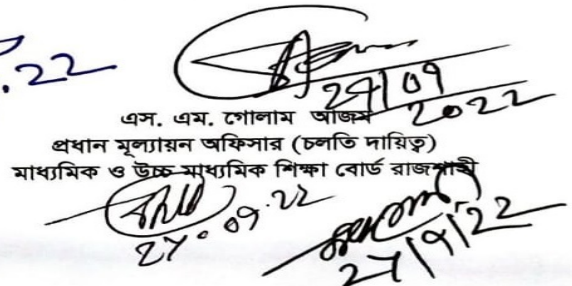 .22
27/09
2022
এস. এম. গোলাম আজম
প্রধান মূল্যায়ন অফিসার (চলতি দায়িত্ব)
মাধ্যমিক ও উচ্চ মাধ্যমিক শিক্ষা বোর্ড রাজশাহী
27.09.22
27/9/22